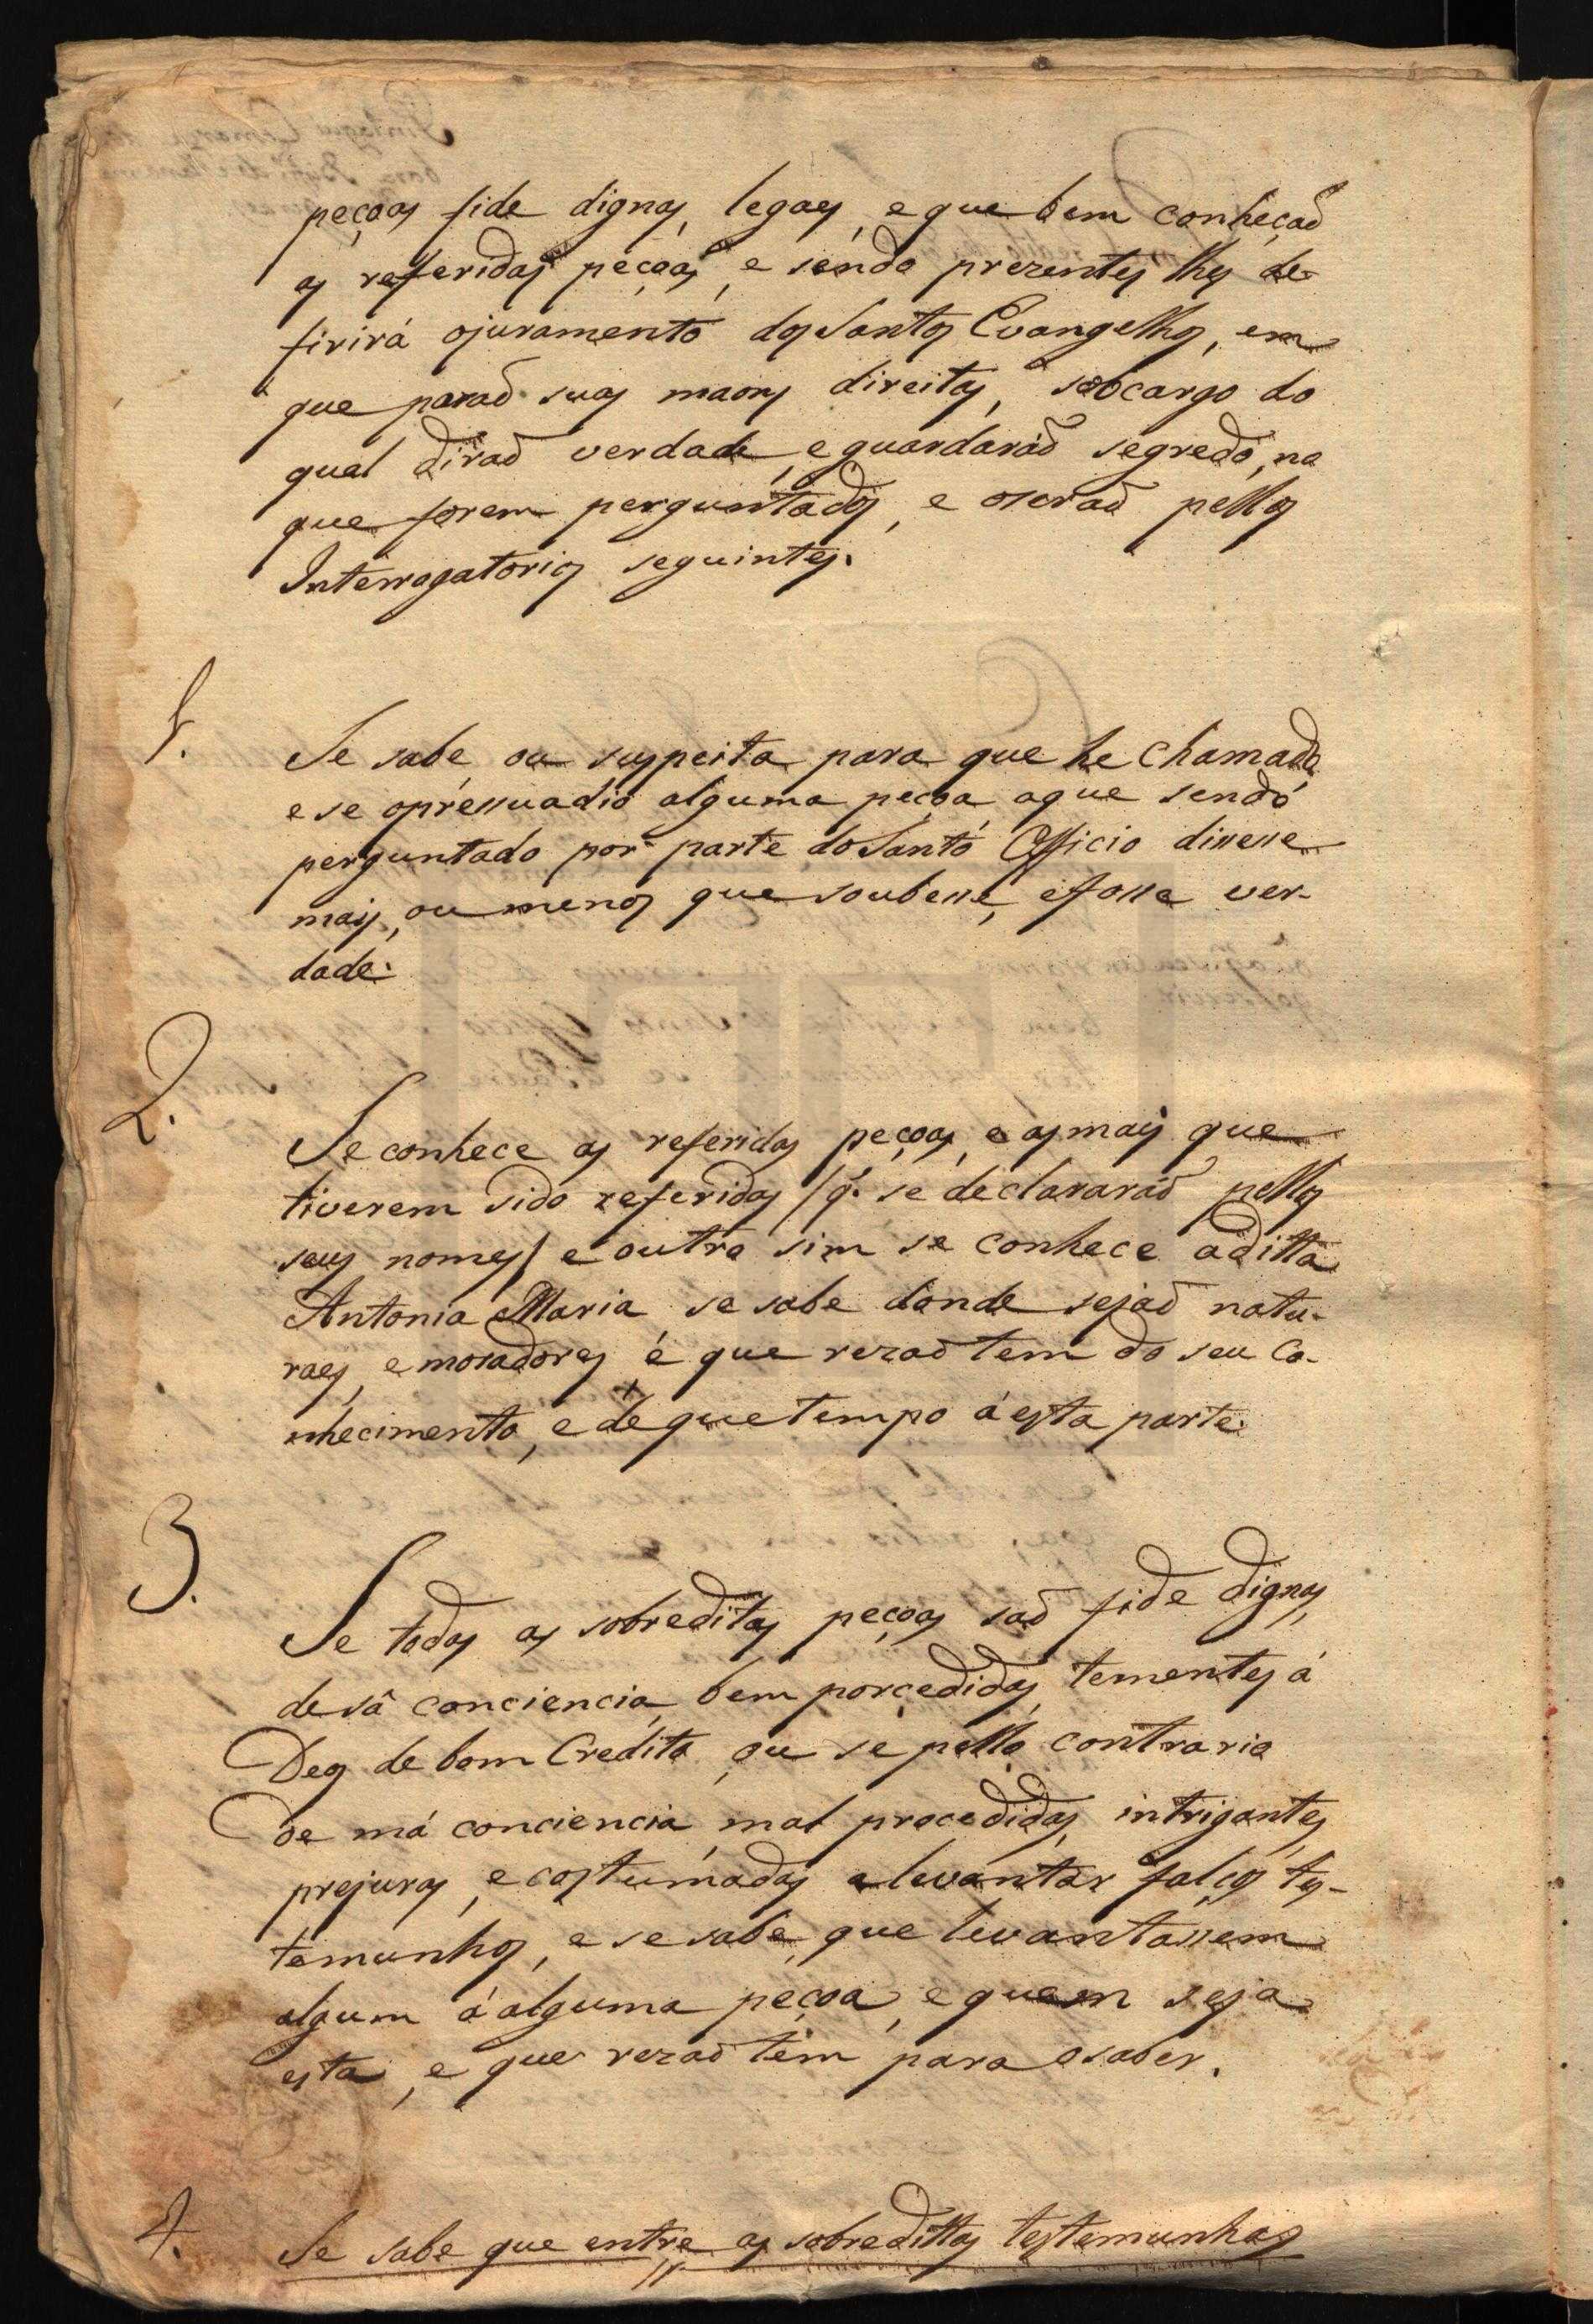 peçoas fide dignas, legaes, e que bem conheçaõ
as referidas peçoas, e sendo prezentes lhes de-
firirá ojuramento dos Santos Evangelhos, em
que poraõ suas maons direitas, sobcargo do
qual diraõ verdade, e guardaráõ segredo, no
que forem perguntados, e oseraõ pellos
Interrogatorios seguintes.
1. Se sabe, ou suspeita para que he chamado,
e se opressuadio alguma peçoa, aque sendo
perguntado por parte do Santo Officio dissesse
mais, ou menos que soubesse, efosse ver-
dade.
2. Se conhece as referidas peçoas, e as mais que
tiverem sido referidas /q. se declararáõ pellos
seus nomes/ e outro sim se conhece aditta
Antonia Maria, se sabe donde sejaõ natu-
raes, e moradores, é que rezaõ tem do seu Co-
nhecimento, e de que tempo á esta parte.
3. Se todas as sobreditas peçoas saõ fide dignas,
de sã conciencia, bem porcedidas, tementes á
Deos de bom Credito, ou se pello contrario
De má conciencia, mal procedidas, intrigantes,
prejuras, e costumadas alevantar falços tes-
temunhos, e se sabe, que levantassem
algum á alguma peçoa, e quem seja
esta, e que rezaõ tem para osaber.
4. Se sabe que entre as sobredittas testemunhas